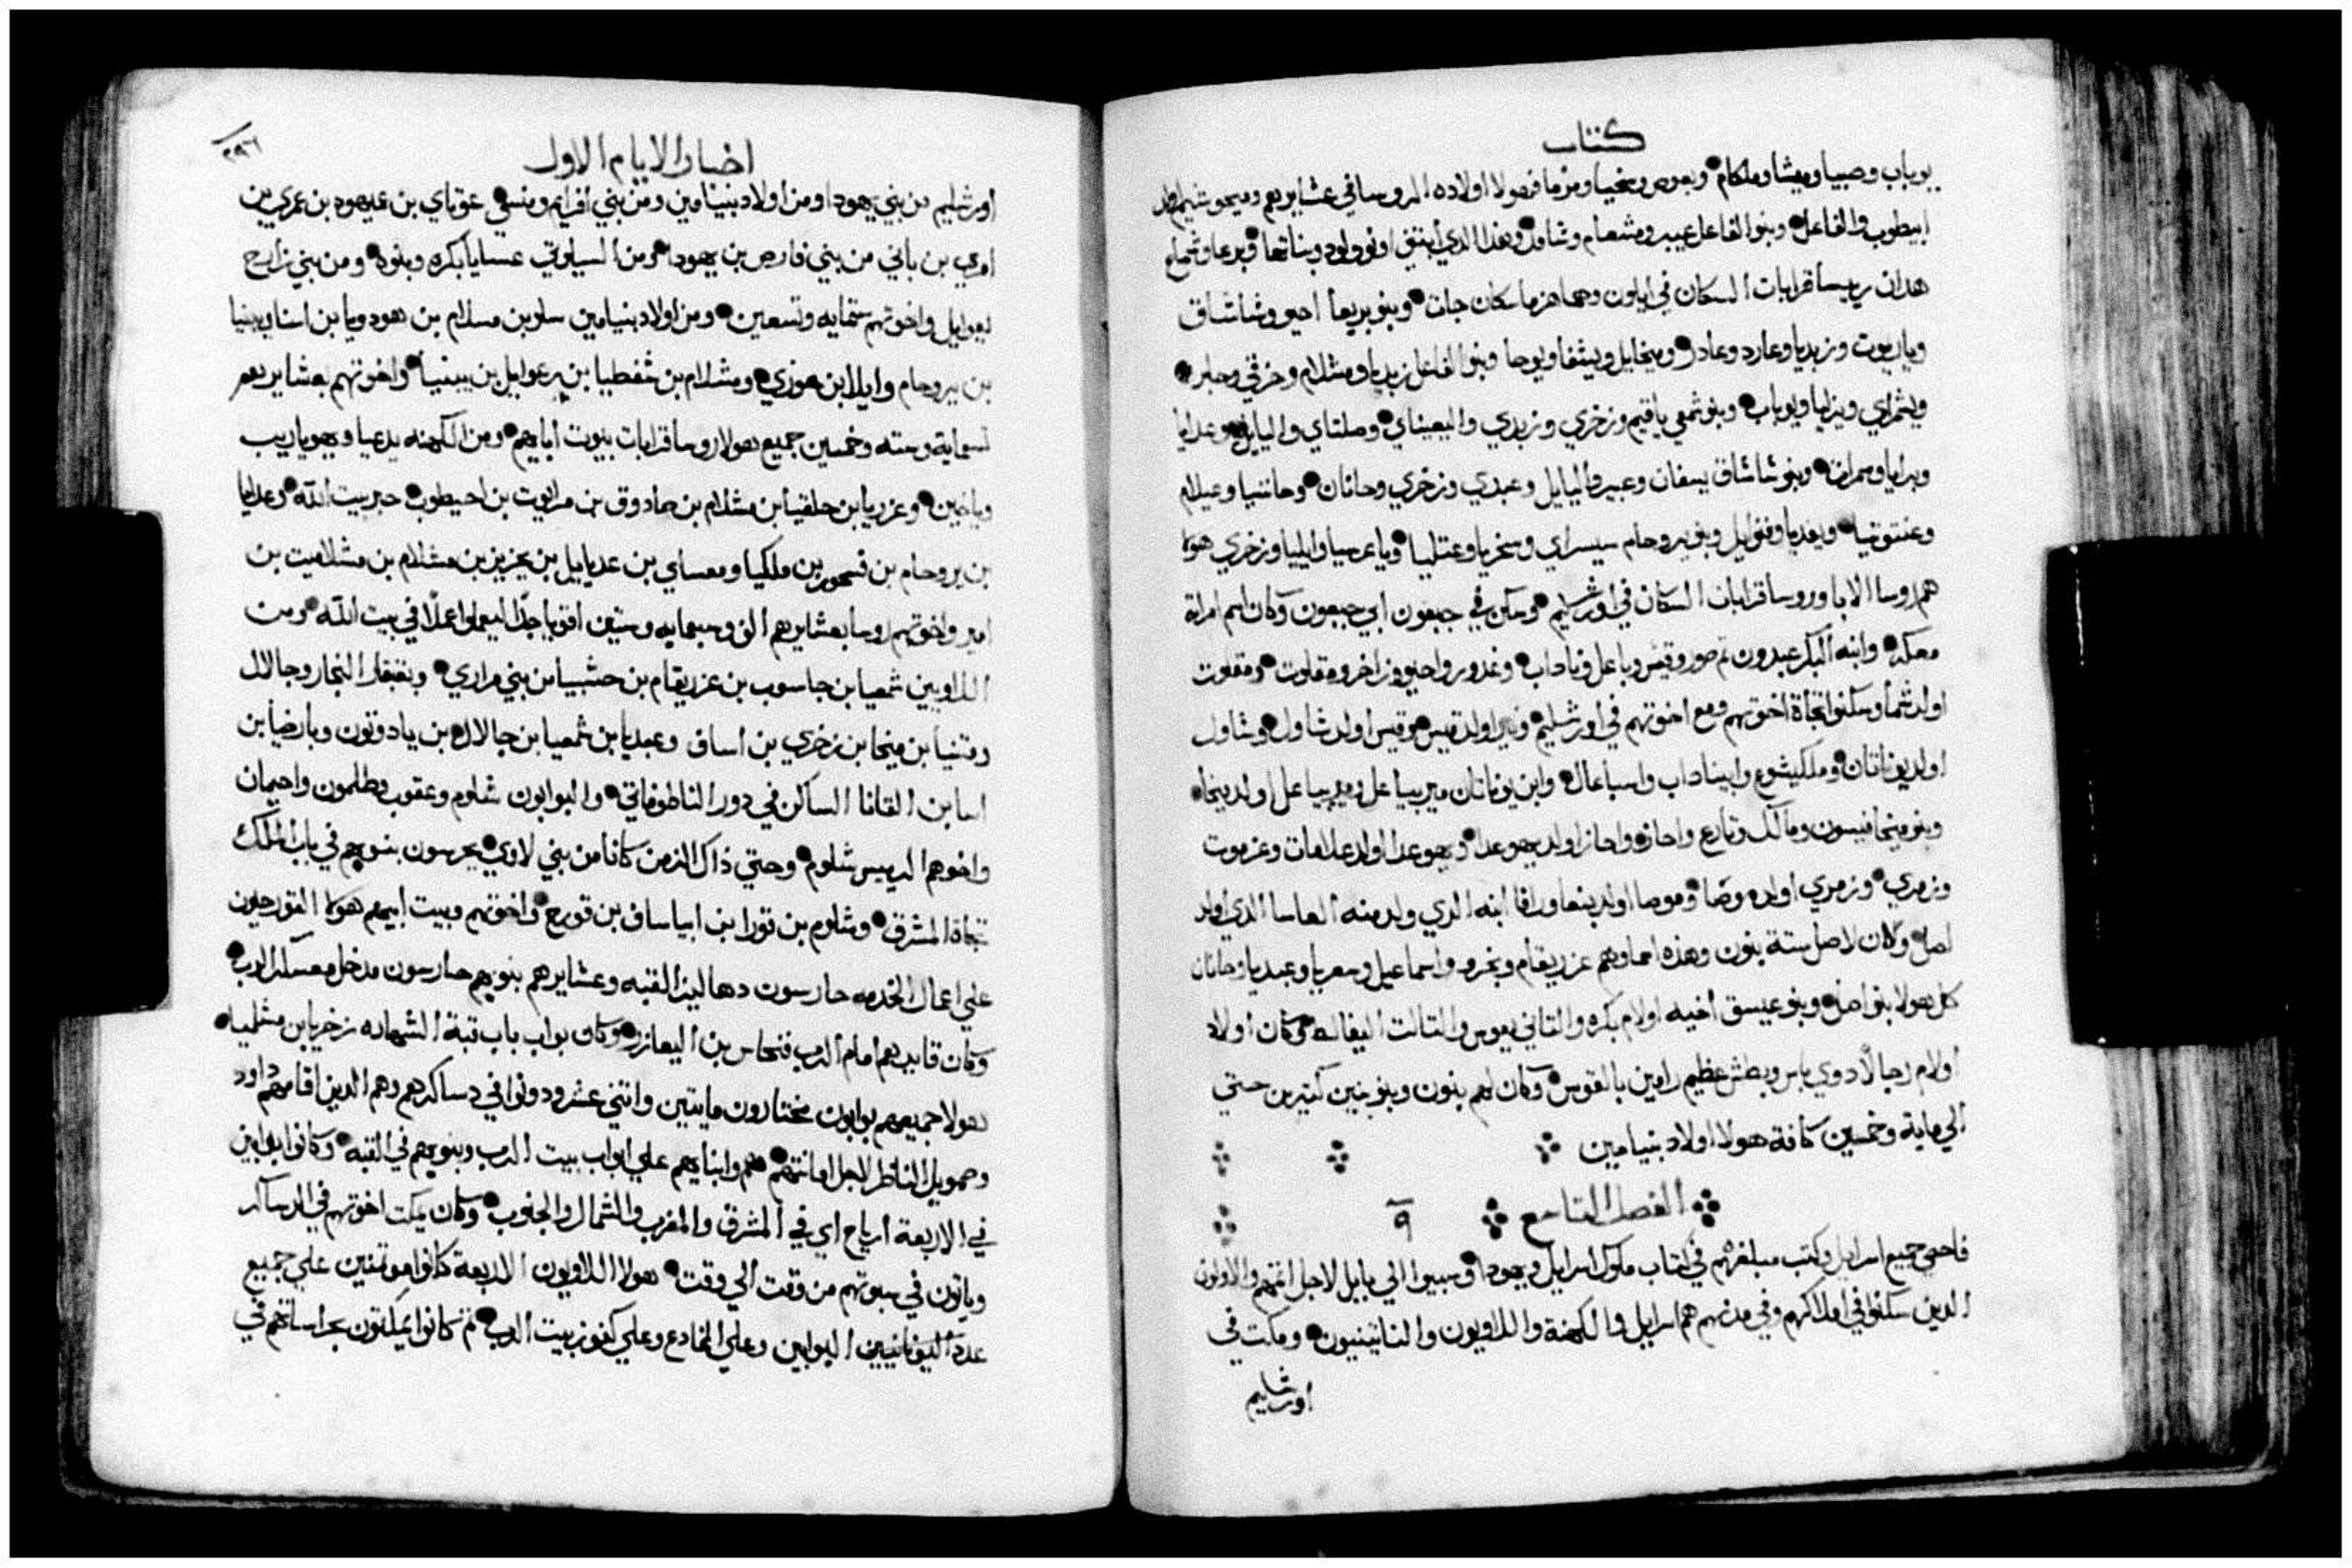 كتاب
يوباب وصبيا وميشا وملكام وبعوص وسخيا ومرما فهولا اولاده الروسا في عشايرهم وميحوشيم اولد
ابيطوب والفاعل وبنوا الفاعل عبير ومشعام وشامد وهذا الذي ابتني اونو ولود وبناتها وبرعا وشماع
هدان رييسا قرابات السكان في ايلون وهما هزما سكان جات وبنو بريعا احيو وشاشاق
وياريوت وزبديا وعارد وعادر وميخايل ويشفا ويوحا وبنوا الفاعل زبديا ومشلام وحزقي وحابر
ويشمراي ويزليا ويوباب وبنو شمعي ياقيم وزخري وزبدي واليعيناي وصلتاي واليايل وعدايا
وبرايا وسمرات وبنو شاشاق يسفان وعبير واليايل وعبدي وزخري وحانان وحاننيا وعيلام
وعنتوتيا ويفديا وفنوايل وبنو يروحام سيسراي وسخريا وعتليا ويا عرسيا وايليا وزخري هولا
هم روسا الابا وروسا قرابات السكان في اورشليم وسكن في جبعون ابي جبعون وكان اسم امراة
معكه وابنه البكر عبدون ثم صور وقيس وباعل وناداب وغدور واحيو وزاخر ومقلوت ومقلوت
اولد شما وسكنوا تجاة اخوتهم ومع اخوتهم في اورشليم ونير اولد قيس وقيس اولد شاول وشاول
اولد يوناتان وملكيشوع وابيناداب واسباعال وابن يوناتان مريبيا عل ومريبيا عل اولد ميخا
وبنو ميخا فيسون ومالك وتارع واحاز واحاز اولد يهوعدا ويهوعدا اولد علامات وعزموت
وزمري وزمري اولد موصا وموصا اولد بنعا ورافا ابنه الذي ولد منه العاسا الذي اولد
اصل وكان لاصل ستة بنون وهذه اسماوهم عزريقام وبخرو واسماعيل وسعريا وعبديا وحانان
كل هولا بنو اصل وبنو عيسق اخيه اولام بكره والثاني يعوس والثالث اليفالط وكان اولاد
اولام رجالا دوي باس وبطش عظيم رامين بالقوس وكان لهم بنون وبنو بنين كثيرين حتي
الي ماية وخمسين كافة هولا اولاد بنيامين
الفصل التاسع ٩
فاحصي جميع اسرايل وكتب مبلغهم في كتاب ملوك اسرايل ويهودا وسبيوا الي بابل لاجل اثمهم والاولون
الدين سكنوا في املاكهم وفي مدنهم هم اسرايل والكهنة واللاويون والناتينيون ومكث في
اورشليم
٢٩٦
اخبار الايام الاول
اورشليم من بني يهودا ومن اولاد بنيامين ومن بني افرايم ومنسي عوتاي بن عميهود بن عمري بن
امري بن باني من بني فارص بن يهودا ومن السيلوني عسايا بكره وبنوه ومن بني زارح
يعوايل واخوتهم ستمايه وتسعين ومن اولاد بنيامين سلو بن مسلام بن هودويا بن اسنا ويبنيا
بن يروحام وايلا بن عوزي ومشلام بن شفطيا بن رعوايل بن يبنيا واخوتهم بعشايرهم
تسعماية وسته وخمسين جميع هولا روسا قرابات بيوت اباهم ومن الكهنه يدعيا ويهوياريب
وياخين وعزريا بن حلقيا بن مشلام بن صادوق بن مرايوت بن احيطوب حبر بيت الله وعدايا
بن يروحام بن فسحور بن ملكيا ومعساي بن عدياييل بن يحزير بن مشلام بن مشلاميت بن
امير واخوتهم روسا بعشايرهم الف وسبعمايه وستين اقويا جدا ليعملوا عملا في بيت الله ومن
اللاويين شمعيا بن حاسوب بن عزريقام بن حشبيا من بني مراري وبقبقار النجار وجالال
ومتنيا بن ميخا بن زخري بن اساف وعبديا بن شمعيا بن جالال بن يادوتون وبارخيا بن
اسا بن القانا الساكن في دور الناطوفاتي والبوابون شلوم وعقوب وطلمون واحيمان
واخوهم الرييس شلوم وحتي ذاك الزمن كانا من بني لاوي يحرسون بنوبهم في باب الملك
تجاة المشرق وشلوم بن قورا بن ابياساف بن قورح واخوتهم وبيت ابيهم هولا القورحيون
علي اعمال الخدمه حارسون دهاليز القبه وعشايرهم بنوبهم حارسون مدخل معسكر الرب
وكان قايدهم امام الرب فنحاس بن اليعازر وكان بواب باب قبة الشهاده زخريا بن مشلميا
هولا جميعهم بوابون مختارون مايتين واثني عشر ودونوا في دساكرهم وهم الدين اقامهم داود
وصمويل الناظر لاجل امانتهم هم وابناهم علي ابواب بيت الرب وبنوبهم في القبه وكانوا بوابين
في الاربعة ارياح اي في المشرق والمغرب والشمال والجنوب وكان يمكث اخوتهم في الدساكر
وياتون في سبوتهم من وقت الي وقت هولا اللاويون الاربعة كانوا موتمنين علي جميع
عدد البوابين وعلي المخادع وعلي كنوز بيت الرب ثم كانوا يمكثون بحراساتهم في